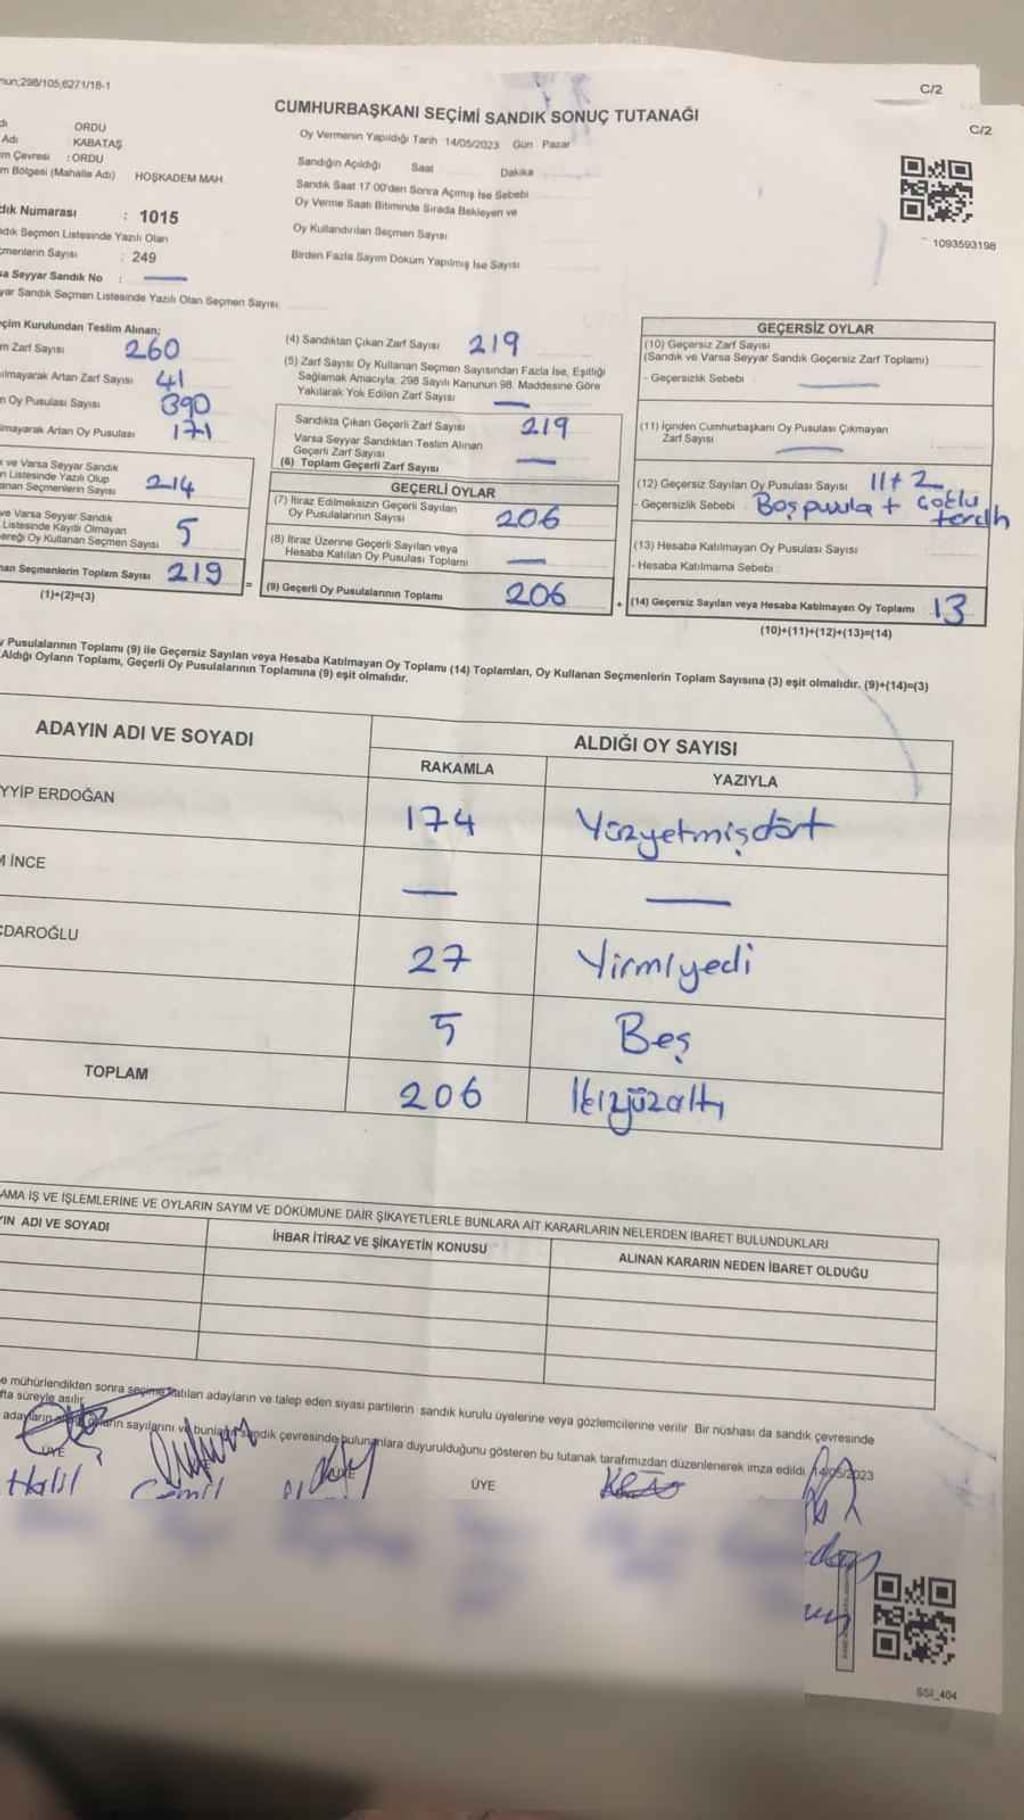 298/105;6271/18-1
C/2
C/2
CUMHURBAŞKANI SEÇİMİ SANDIK SONUÇ TUTANAĞI
ORDU
Adı KABATAŞ
m Çevresi : ORDU
m Bölgesi (Mahalle Adı) HOŞKADEM MAH.
dık Numarası : 1015
dık Seçmen Listesinde Yazılı Olan
çmenlerin Sayısı : 249
sa Seyyar Sandık No : —
yar Sandık Seçmen Listesinde Yazılı Olan Seçmen Sayısı:
Oy Vermenin Yapıldığı Tarih 14/05/2023 Gün Pazar
Sandığın Açıldığı Saat Dakika
Sandık Saat 17.00'den Sonra Açımış İse Sebebi
Oy Verme Saati Bitiminde Sırada Bekleyen ve
Oy Kullandırılan Seçmen Sayısı
Birden Fazla Sayım Döküm Yapılmış İse Sayısı
1093593198
çim Kurulundan Teslim Alınan;
m Zarf Sayısı 260
ılmayarak Artan Zarf Sayısı 41
n Oy Pusulası Sayısı 390
lmayarak Artan Oy Pusulası 171
k ve Varsa Seyyar Sandık
n Listesinde Yazılı Olup
anan Seçmenlerin Sayısı 214
ve Varsa Seyyar Sandık
Listesinde Kayıtlı Olmayan
ereği Oy Kullanan Seçmen Sayısı 5
nan Seçmenlerin Toplam Sayısı 219 =
(1)+(2)=(3)
(4) Sandıktan Çıkan Zarf Sayısı 219
(5) Zarf Sayısı Oy Kullanan Seçmen Sayısından Fazla İse, Eşitliği
Sağlamak Amacıyla; 298 Sayılı Kanunun 98. Maddesine Göre
Yakılarak Yok Edilen Zarf Sayısı —
Sandıkta Çıkan Geçerli Zarf Sayısı 219
Varsa Seyyar Sandıktan Teslim Alınan
Geçerli Zarf Sayısı —
(6) Toplam Geçerli Zarf Sayısı
GEÇERLİ OYLAR
(7) İtiraz Edilmeksizin Geçerli Sayılan
Oy Pusulalarının Sayısı 206
(8) İtiraz Üzerine Geçerli Sayılan veya
Hesaba Katılan Oy Pusulası Toplamı —
(9) Geçerli Oy Pusulalarının Toplamı 206 +
GEÇERSİZ OYLAR
(10) Geçersiz Zarf Sayısı
(Sandık ve Varsa Seyyar Sandık Geçersiz Zarf Toplamı)
- Geçersizlik Sebebi —
(11) İçinden Cumhurbaşkanı Oy Pusulası Çıkmayan
Zarf Sayısı —
(12) Geçersiz Sayılan Oy Pusulası Sayısı 11+2
- Geçersizlik Sebebi Boş pusula + Çoklu
tercih
(13) Hesaba Katılmayan Oy Pusulası Sayısı
- Hesaba Katılmama Sebebi
(14) Geçersiz Sayılan veya Hesaba Katılmayan Oy Toplamı 13
(10)+(11)+(12)+(13)=(14)
y Pusulalarının Toplamı (9) ile Geçersiz Sayılan veya Hesaba Katılmayan Oy Toplamı (14) Toplamları, Oy Kullanan Seçmenlerin Toplam Sayısına (3) eşit olmalıdır. (9)+(14)=(3)
Aldığı Oyların Toplamı, Geçerli Oy Pusulalarının Toplamına (9) eşit olmalıdır.
ADAYIN ADI VE SOYADI
ALDIĞI OY SAYISI
RAKAMLA YAZIYLA
YYİP ERDOĞAN 174 Yüzyetmişdört
M İNCE — —
ÇDAROĞLU 27 Yirmiyedi
5 Beş
TOPLAM 206 İkiyüzaltı
AMA İŞ VE İŞLEMLERİNE VE OYLARIN SAYIM VE DÖKÜMÜNE DAİR ŞİKAYETLERLE BUNLARA AİT KARARLARIN NELERDEN İBARET BULUNDUKLARI
IN ADI VE SOYADI İHBAR İTİRAZ VE ŞİKAYETİN KONUSU ALINAN KARARIN NEDEN İBARET OLDUĞU
e mühürlendikten sonra seçime katılan adayların ve talep eden siyasi partilerin sandık kurulu üyelerine veya gözlemcilerine verilir. Bir nüshası da sandık çevresinde
fta süreyle asılır.
adayların oyların sayılarını ve bunların sandık çevresinde bulunanlara duyurulduğunu gösteren bu tutanak tarafımızdan düzenlenerek imza edildi. 14/05/2023
ÜYE ÜYE
Halil Cemil
SSİ_404